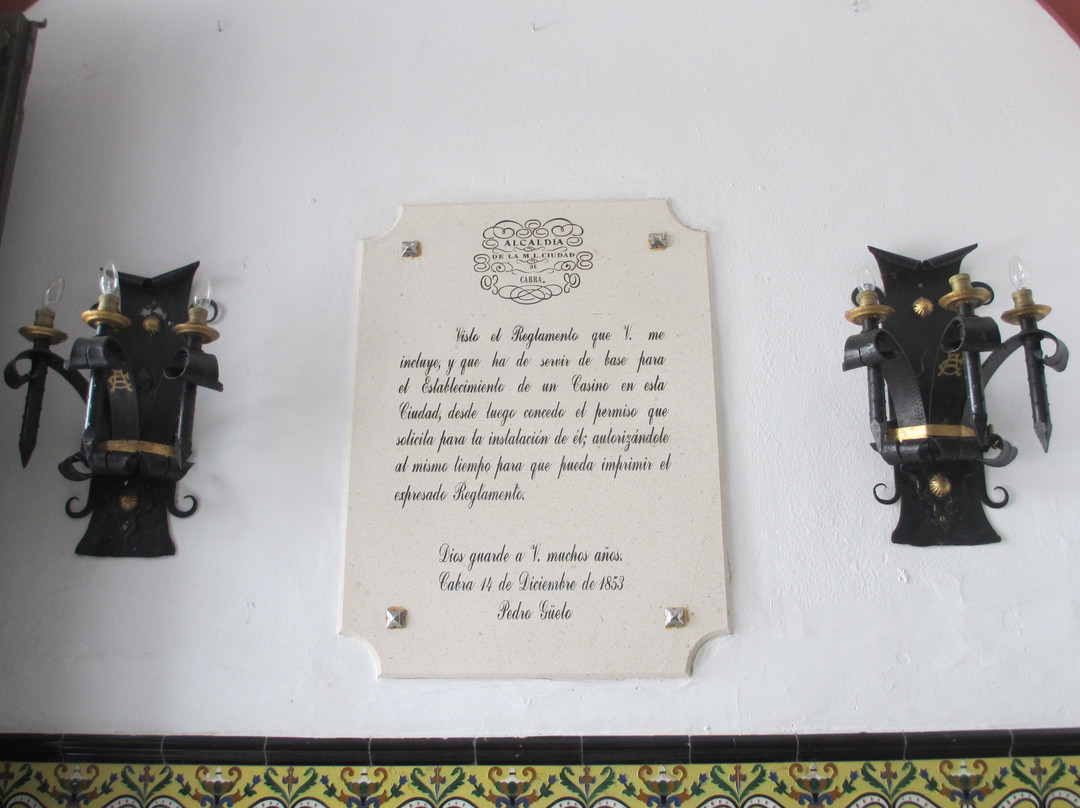 ALCALDIA
DE LA M.L.CIUDAD
DE
CABRA.
Visto el Reglamento que V. me
incluye, y que ha de servir de base para
el Establecimiento de un Casino en esta
Ciudad, desde luego concedo el permiso que
solicita para la instalación de él; autorizándole
al mismo tiempo para que pueda imprimir el
expresado Reglamento.
Dios guarde a V. muchos años.
Cabra 14 de Diciembre de 1853
Pedro Güeto